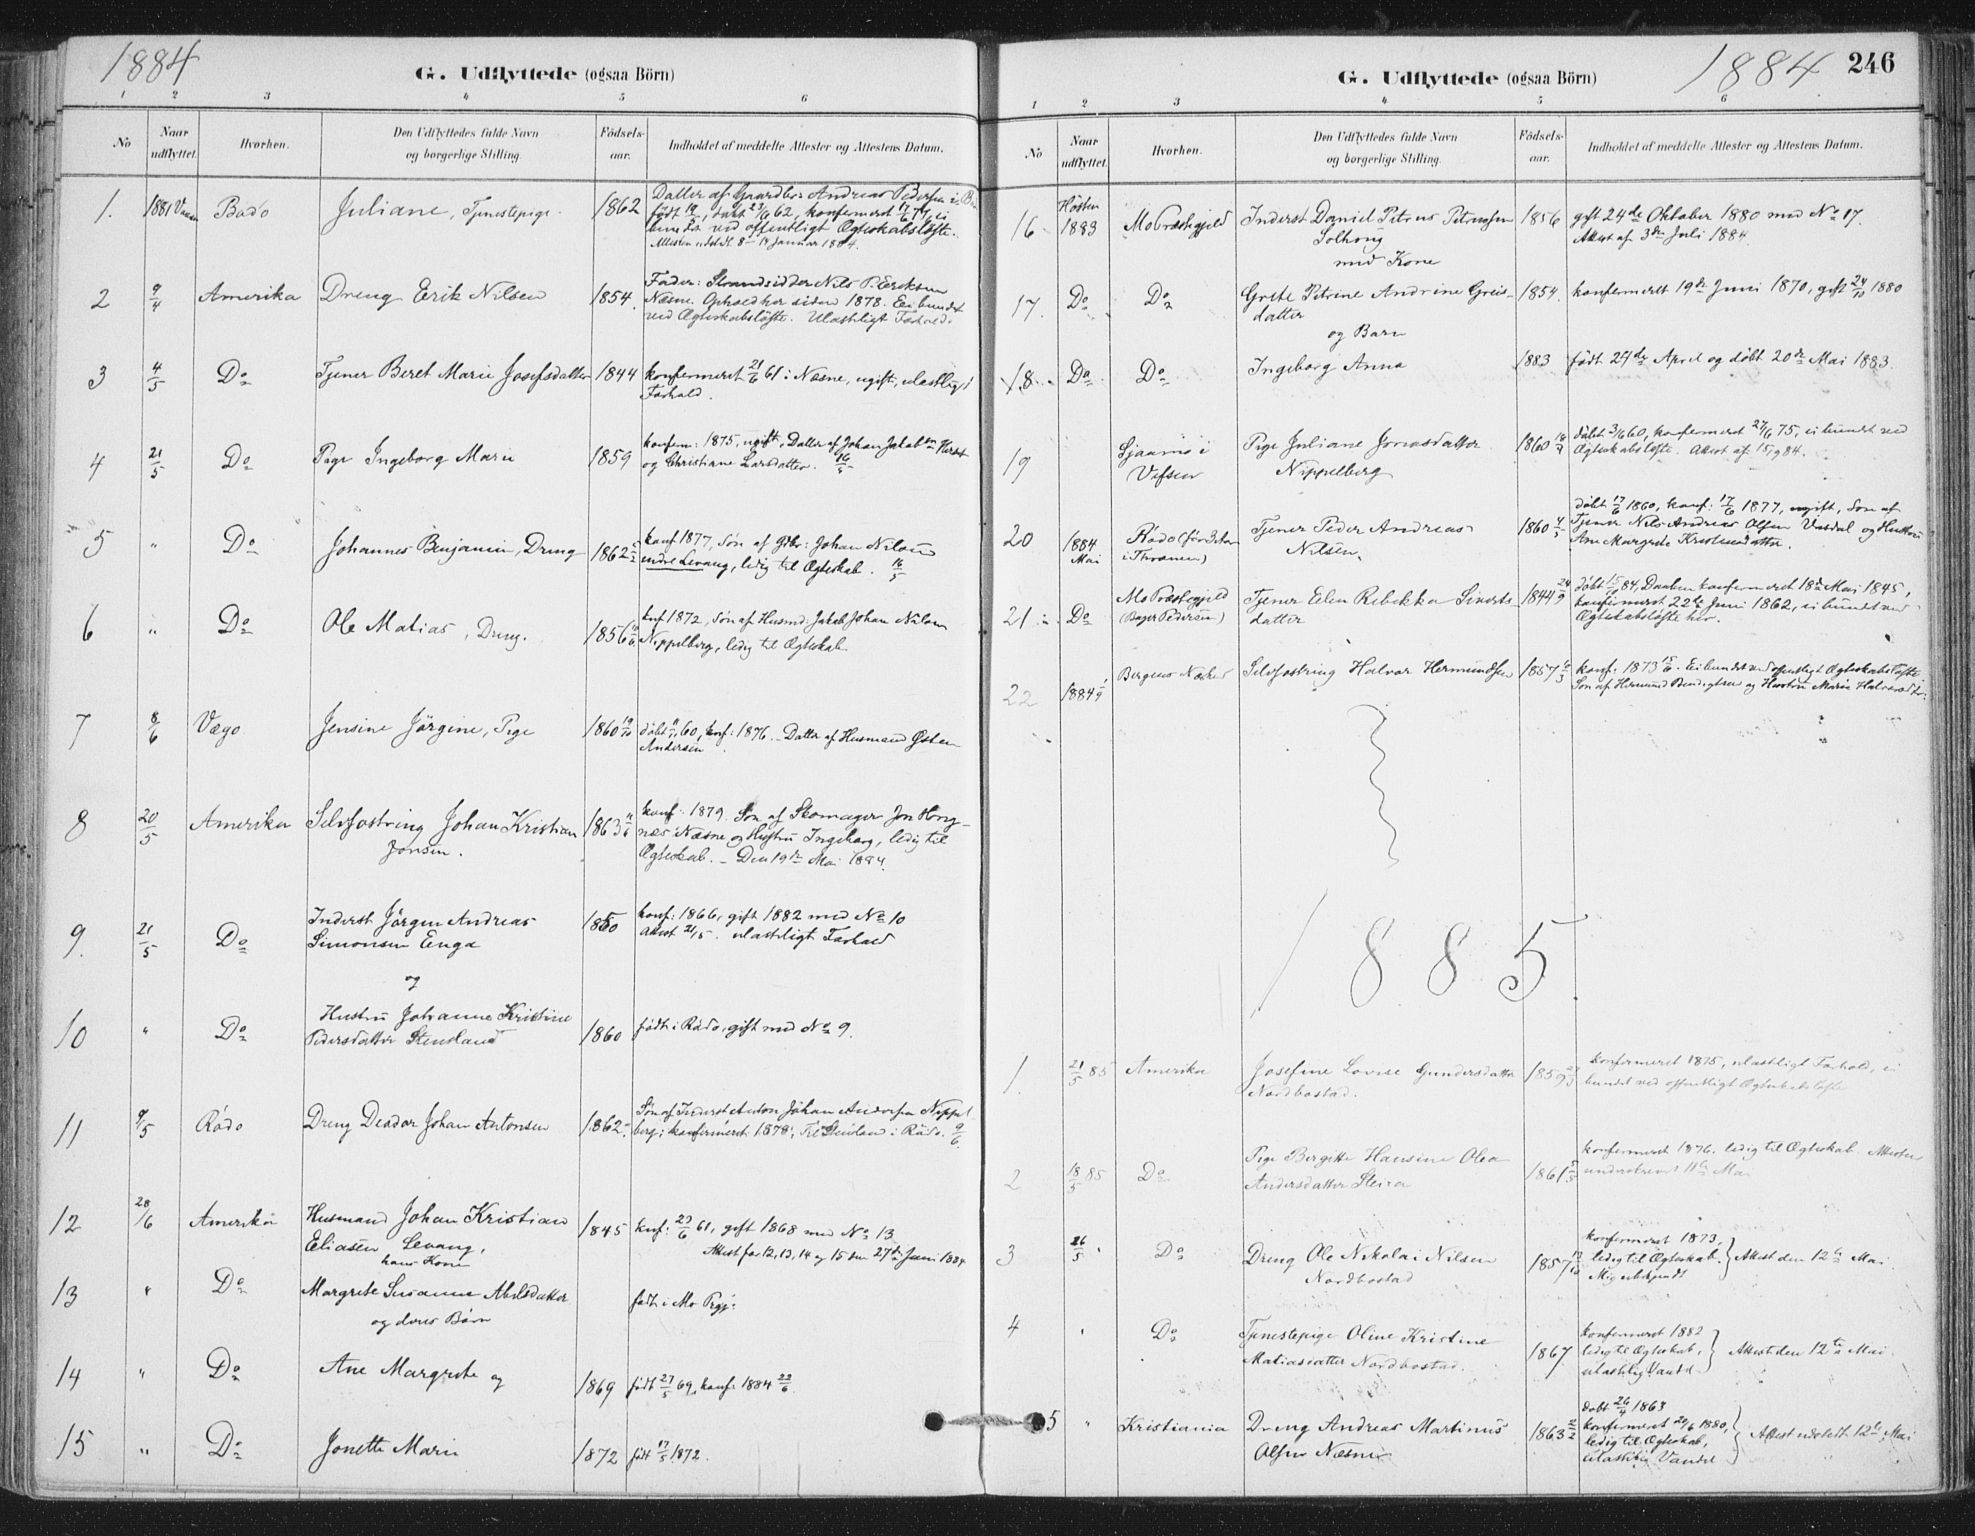 1884
G. Udflyttede (ogsaa Börn)
1 2 3 4 5 6
No
Naar udflyttet.
Hvorhen.
Den Udflyttedes fulde Navn og borgerlige Stilling.
Födsels-aar.
Indholdet af meddelte Attester og Attestens Datum.
1. 1881 Bodo Juliane, Tjenestepige. 1862 Datter af Gaardbr: Andreas Pedersen i
født, døbt 62, konfirmeret 17/6 77, ei
bundet ved offentligt Ægteskabsløfte.
Januar 1884.
2 9/4 Amerika Dreng Erik Nilsen 1854. Fader: Strandsidder Nils P. Eriksen
Næsne. Ophold her siden 1878. Ei bundet
ved Ægteskabsløfte. Ulasteligt Forhold.
3 4/5 Do Tjener Beret Marie Josefsdatter 1844 konfirmeret 21/6 61 i Næsne, ugift, ulasteligt
Forhold.
4 21/5 Do Pige Ingeborg Marie 1859 konfirm: 1875, ugift, Datter af Johan Jakobsen
og Christiane Larsdatter. 16/5
5 " Do Johannes Benjamin, Dreng 1862 konf 1877, Søn af Gdbr: Johan Nilsen
indre Levang, ledig til Ægteskab. 16/5
6 " Do Ole Matias, Dreng. 1856 knf 1872, Søn af Husmd. Jakob Johan Nilsen
Nippelberg, ledig til Ægteskab.
7 8/6 Vego Jensine Jörgine, Pige 1860 19/10 döbt 60, konf: 1876. Datter af Husmand Østen
Andersen.
8 20/5 Amerika Selvfostring Johan Kristian 1863 konf. 1879. Søn af Skomager Jon
Jonsen. Næsne og Hustru Ingeborg, ledig til
Ægteskab. – Den 19de Mai 1884.
9. 21/5 Do Inderst Jörgen Andreas 1850 konf: 1866, gift 1882 med No 10
Simonsen Enga Attest 21/5. ulasteligt Forhold
og
10 " Do Hustru Johanne Kristine 1860 født i Rödo, gift med No 9.
Pedersdatter Stensland
11 9/5 Rödo Dreng Deodor Johan Antonsen 1862 Søn af Inderst Anton Johan Andersen Nippel
berg; konfirmeret 1878; Til i Rödo. 9/6
12 28/6 Amerika Husmand Johan Kristian 1845 knf: 23/6 61, gift 1868 med No 13
Eliasen Levang, Attest for 12, 13, 14 og 15 den 27de Juni 1884
hans Kone
13 " Do Margrete Susanne Abelsdatter født i Mo Prgj:
og deres Börn
14 " Do Ane Margrete og 1869 født 27/5 69, konf: 1884 22/6
15 " Do Jonette Marie 1872 født 17/5 1872.
G. Udflyttede (ogsaa Börn)
1884
246
1 2 3 4 5 6
No
Naar udflyttet.
Hvorhen.
Den Udflyttedes fulde Navn og borgerlige Stilling.
Födsels-aar.
Indholdet af meddelte Attester og Attestens Datum.
16 Høsten 1883 Mo Præstegjeld Inderst Daniel Petrus Petersen 1856 gift 24de Oktober 1880 med No 17.
Solhoug Attest af 3de Juli 1884.
med Kone
17. Do Do Grete Petrine Andrine Greis- 1854. konfirmeret 19de Juni 1870, gift 24/10 1880
datter
og Barn
18 Do Do Ingeborg Anna 1883 født 29de April og döbt 20de Mai 1883.
19 Sjaamo i Pige Juliane Jonasdatter 1860 döbt 3/6 60, konfirmeret 27/6 75, ei bundet ved
Vefsen Nippelberg Ægteskabsløfte. Attest af 84.
20 1884 Mai Rödo Tjener Peder Andreas 1860 4/5 döbt 17/6 1860, konf: 17/6 1877, ugift, Søn af
Nilsen. Tjener Nils Andreas Olsen Vasdal og Hustru
Ane Margrete Kristensdatter.
21 Do Mo Præstegjeld Tjener Elen Rebekka Siverts- 1844 döbt
(Bager Pedersen) datter konfirmeret 22de Juni 1862, ei bundet ved
Ægteskabsløfte her.
22 1884 Bergens Selvfostring Halvor Hermundsen 1857 konf. 1873 15/6. Ei bundet ved offentligt Ægteskabsløfte.
Søn af Hermund og Hustru Maria
1885
1. 21/5 85 Amerika Josefine Lovise Gundersdatter 1859 konfirmeret 1875, ulasteligt Forhold, ei
Nordbostad. bundet ved offentligt Ægteskabsløfte
2 18/5 85 Do Pige Birgitte Hansine Olea 1861 konfirmeret 1876. ledig til Ægteskab. Attesten
Andersdatter underskrevet 11te Mai
3 26/5 Do Dreng Ole Nikolai Nilsen 1857 konfirmeret 1873,
Nordbostad ledig til Ægteskab. Attest den 12te Mai.
4 " Do Tjenestepige Oline Kristine 1867 konfirmeret 1882
Matiasdatter Nordbostad. ledig til Ægteskab, Attest den 12te Mai.
ulastelig Vandel
5 " Kristiania Dreng Andreas Martinus 1863 døbt 26/4 1863
Olsen Næsne konfirmeret 20/6 1880,
ledig til Ægteskab, Attest udstedt 12te Mai
ulastelig Vandel